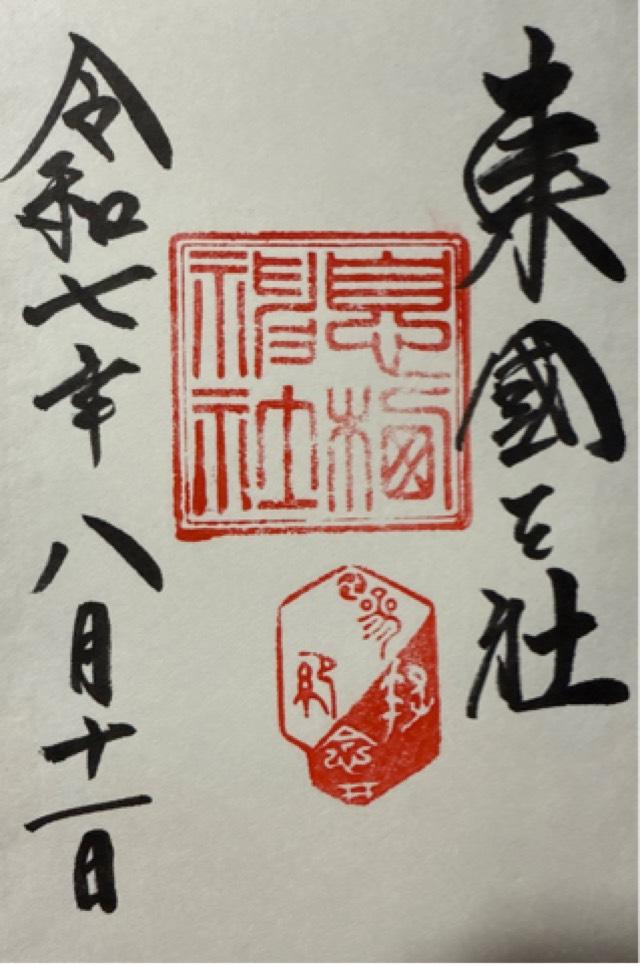 東國三社
息栖
神社
令和七年八月十一日